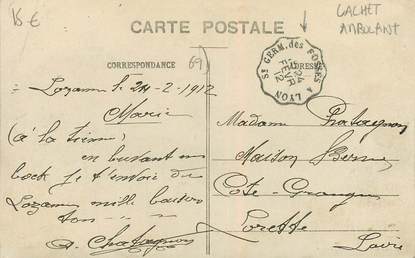 15 €
CACHET
AMBULANT
CARTE POSTALE
CORRESPONDANCE
69
ADRESSE
ST GERM. des FOSSÉS A LYON
24
FEVR
12
Lozanne le 24-2-1912
Marie
(à la tienne)
en buvant un
bock je t'envoie de
Lozanne mille baisers
ton
Chatagnon
Madame Chatagnon
Maison
Côte-Granger
Lorette
Loire